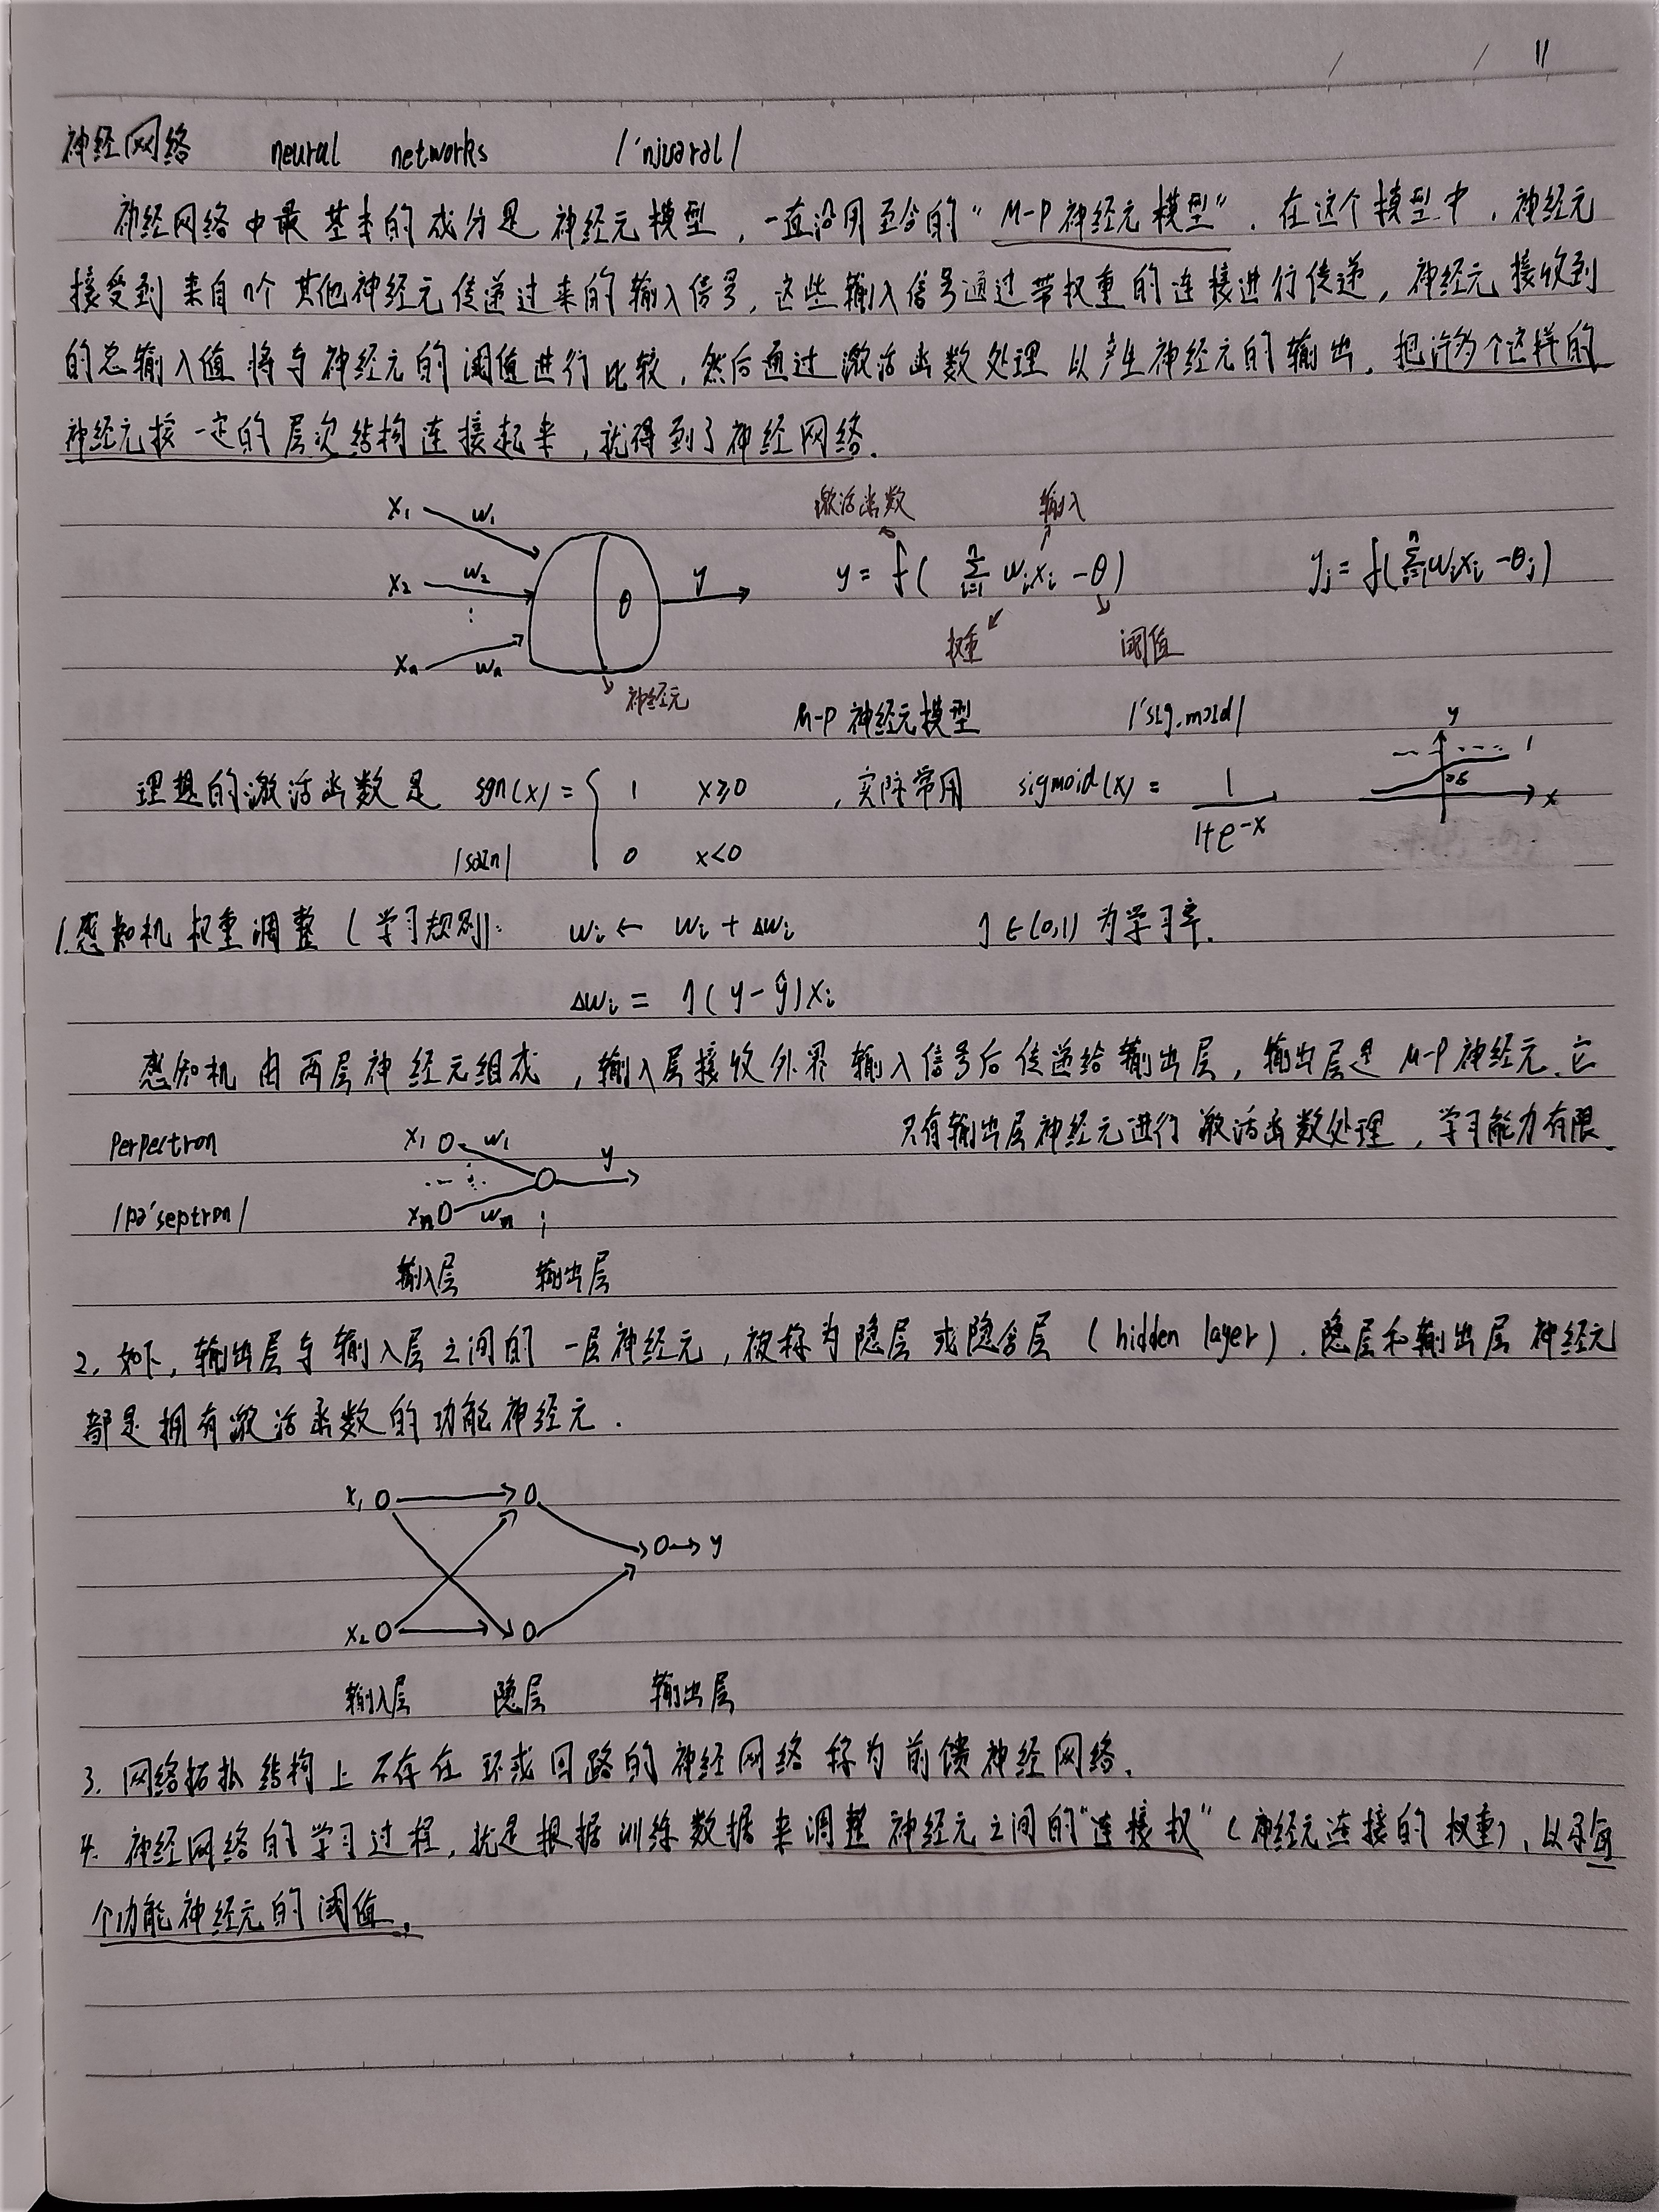 11
神经网络 neural networks /'njʊərəl/
神经网络中最基本的成分是神经元模型，一直沿用至今的“M-P神经元模型”．在这个模型中，神经元
接受到来自n个其他神经元传递过来的输入信号，这些输入信号通过带权重的连接进行传递，神经元接收到
的总输入值将与神经元的阈值进行比较，然后通过激活函数处理以产生神经元的输出．把许多个这样的
神经元按一定的层次结构连接起来，就得到了神经网络．
x₁ w₁
x₂ w₂
⋮
xₙ wₙ
θ y
神经元
激活函数 输入
y = f( Σᵢ₌₁ⁿ wᵢxᵢ - θ) yⱼ = f(Σᵢ₌₁ⁿ wᵢxᵢ - θⱼ)
权重 阈值
M-P神经元模型 /'sɪg.mɔɪd/
理想的激活函数是 sgn(x) = { 1 x≥0 ，实际常用 sigmoid(x) = 1/(1+e^-x)
/saɪn/ 0 x<0
y 1 0.5 x
1.感知机权重调整（学习规则）: wᵢ ← wᵢ + Δwᵢ η∈(0,1) 为学习率．
Δwᵢ = η(y-ŷ)xᵢ
感知机由两层神经元组成，输入层接收外界输入信号后传递给输出层，输出层是M-P神经元．它
只有输出层神经元进行激活函数处理，学习能力有限．
perpectron x₁ w₁ y
/pə'septrɒn/ xₙ wₙ
输入层 输出层
2. 如下，输出层与输入层之间的一层神经元，被称为隐层或隐含层（hidden layer）．隐层和输出层神经元
都是拥有激活函数的功能神经元．
x₁ y
x₂
输入层 隐层 输出层
3. 网络拓扑结构上不存在环或回路的神经网络称为前馈神经网络．
4. 神经网络的学习过程，就是根据训练数据来调整神经元之间的“连接权”（神经元连接的权重），以及每
个功能神经元的阈值．